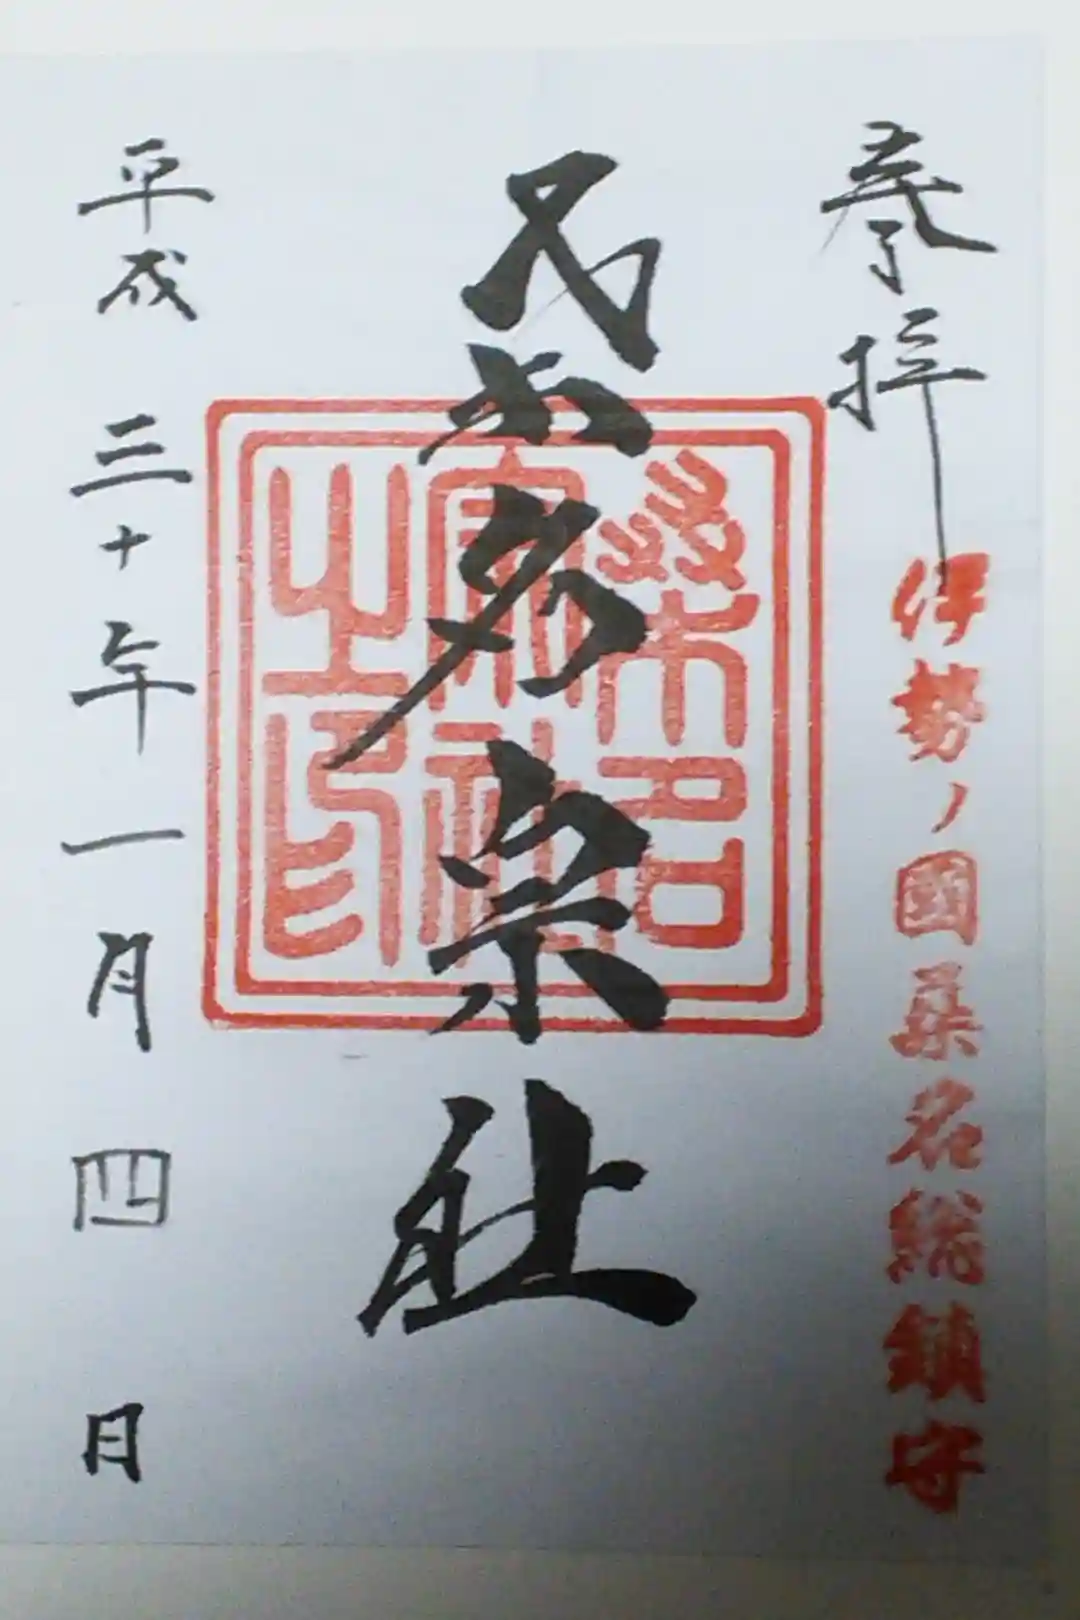 奉拝
伊勢ノ國桑名総鎮守
桑名宗社
桑名
宗社
之印
平成三十年一月四日